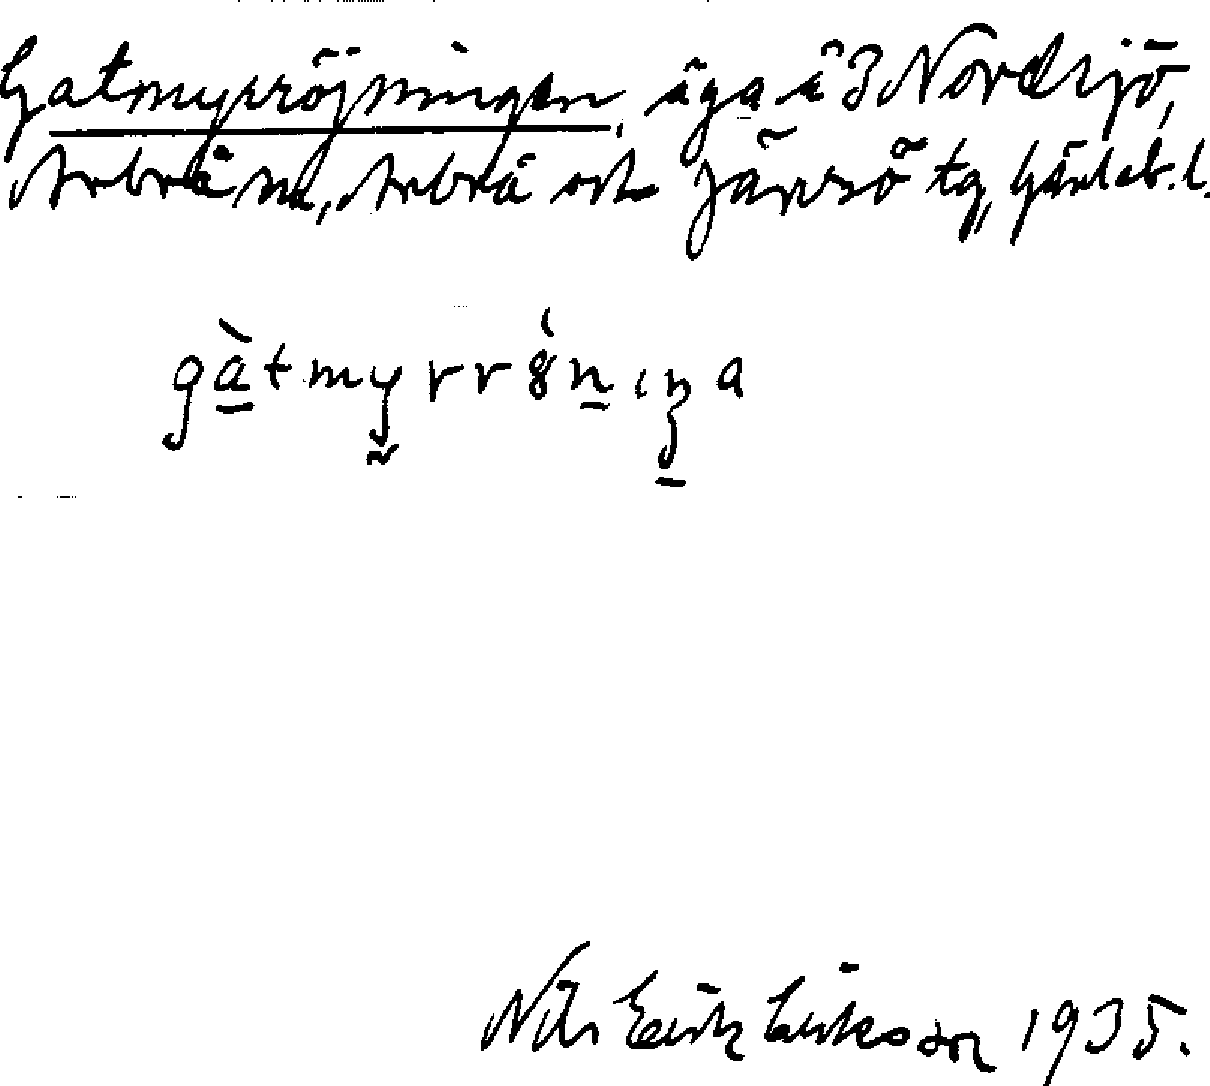 Gatmyrröjningen, äga å 3 Nordsjö,
Arbrå sn, Arbrå och Järvsö tg, Gävleb. l.
gàtmyrrönıŋa
Nils Erik Eriksson 1935.